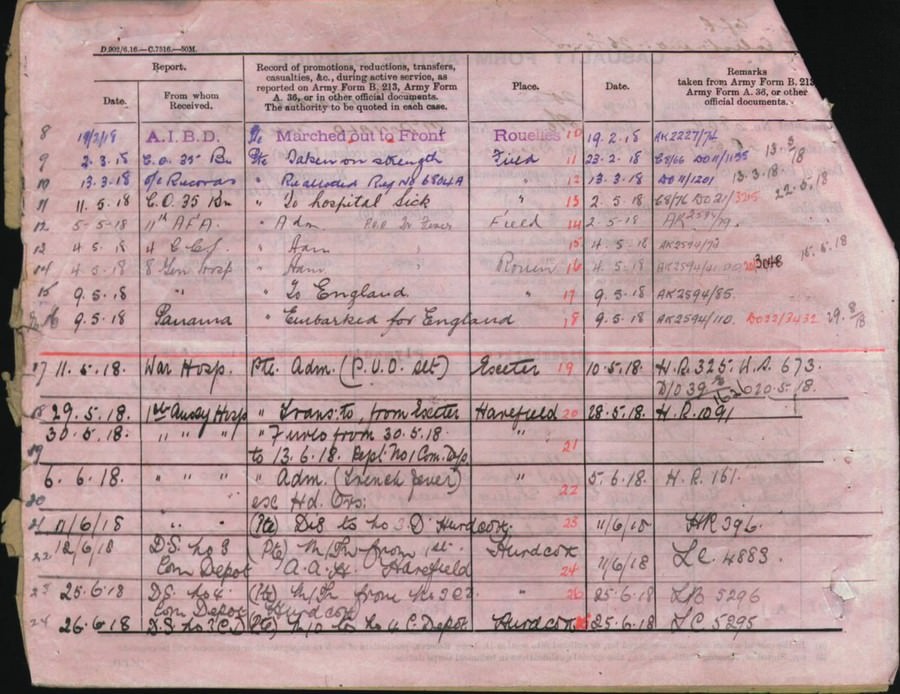 D.902/6.16.—C.7516.—50M.
Report.
Date.
From whom
Received.
Record of promotions, reductions, transfers,
casualties, &c., during active service, as
reported on Army Form B. 213, Army Form
A. 36, or in other official documents.
The authority to be quoted in each case.
Place.
Date.
Remarks
taken from Army Form B. 213
Army Form A. 36, or other
official documents.
8 19/2/18 A.I.B.D. Pte Marched out to Front Rouelles 10 19.2.18 AK2227/74
9 2.3.18 C.O. 35 Bn Pte Taken on strength Field 11 23.2.18 13.3/18
10 13.3.18 o/c Records " Realloted Reg No 6804A " 12 13.3.18 DO11/1201 13.3.18.
11 11.5.18 C.O. 35 Bn " To hospital Sick " 13 2.5.18 22.5.18
12 5-5-18 11th AFA. " Adm. Field 14 2-5-18 AK2594/79.
13 4.5.18 4 C.C.S. " Adm " 15 4.5.18 AK2594/73
14 4.5.18 8 Gen Hosp " Adm Rouen 16 4.5.18 AK2594/41 3048 15.6.18
15 9.5.18 " " To England " 17 9.5.18 AK2594/85.
16 9.5.18 Panama " Embarked for England 18 9.5.18 AK2594/110. DO22/3432 29.8/18
17 11.5.18. War Hosp. Pte. Adm. (P.U.O. slt) Exeter 19 10.5.18. H.R. 325. W.S. 673.
20.5.18.
29.5.18. 1st Aussy Hosp " Trans. to, from Exeter Harefield 20 28.5.18. H.R. 1091
30.5.18. " " " " Furlo from 30.5.18. "
19 to 13.6.18. Rept. No 1 Com. Dep. 21
6.6.18. " " " " Adm. (Trench fever) " 5.6.18. H.R. 161.
20 esc Hd. Qrs. 22
21 11/6/18 " " (Pte) Dis to No 3 D. Hurdcott. 23 11/6/18 HR 396.
22 12/6/18 D.S. No 3 (Pte) M/In from 1st. Hurdcott
Com Depot A.A.H. Harefield 24 11/6/18 LC 4883.
23 25.6.18 D.S. No 4. (Pte) M/In from No 3 C.D. " 25.6.18 5296
Com Depot (Hurdcott)
24 26.6.18 D.S. No 3 C.D. (Pte) M/O to No 4 C. Depot Hurdcott 25.6.18 LC 5295